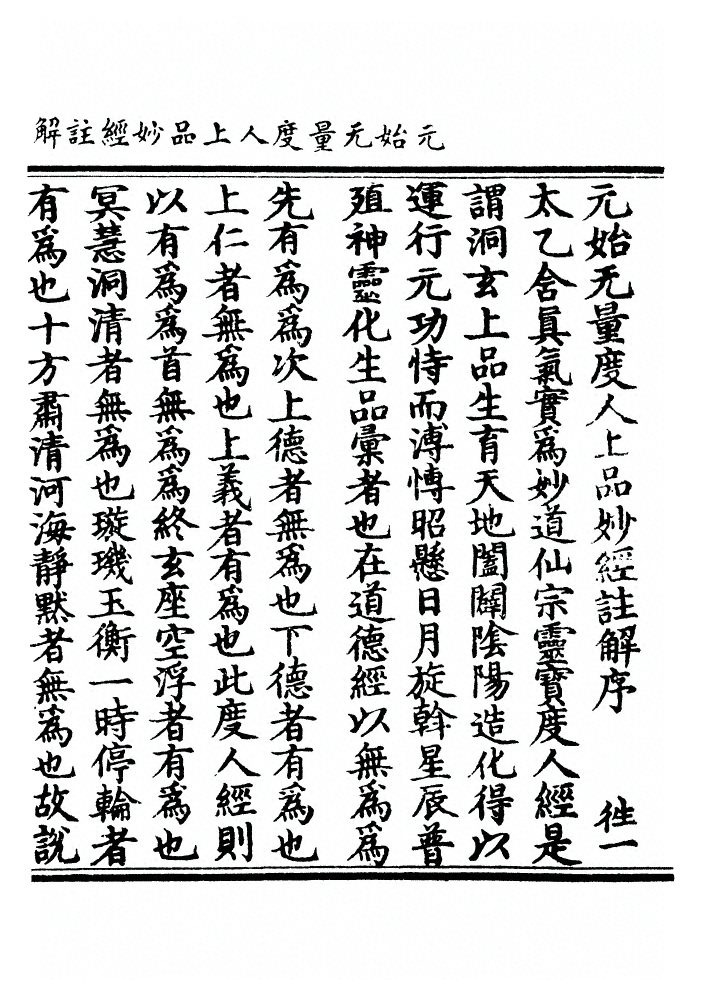 元始无量度人上品妙經註解
元始无量度人上品妙經註解序 徃一
太乙舍眞氣實爲妙道仙宗靈寶度人經是
謂洞玄上品生育天地闔闢陰陽造化得以
運行元功恃而溥愽昭懸日月旋斡星辰普
殖神靈化生品彙者也在道德經以無爲爲
先有爲爲次上德者無爲也下德者有爲也
上仁者無爲也上義者有爲也此度人經則
以有爲爲首無爲爲終玄座空浮者有爲也
冥慧洞清者無爲也璇璣玉衡一時停輪者
有爲也十方肅清河海靜默者無爲也故說